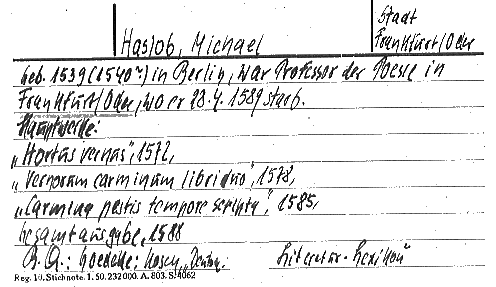 Stadt
Haslob, Michael Frankfurt/Oder
geb. 1539 (1540?) in Berlin, war Professor der Poesie in
Frankfurt/Oder, wo er 28.4.1589 starb.
Hauptwerke:
„Hortus vernus", 1572,
„Vernorum carminum libri duo", 1578,
„Carmina pestis tempore scripta", 1585,
Gesamtausgabe, 1588
B. Q.: Goedeke; Literatur-Lexikon"
Reg. 10. Stichnote. 1. 50. 232000. A. 803. S. 4062